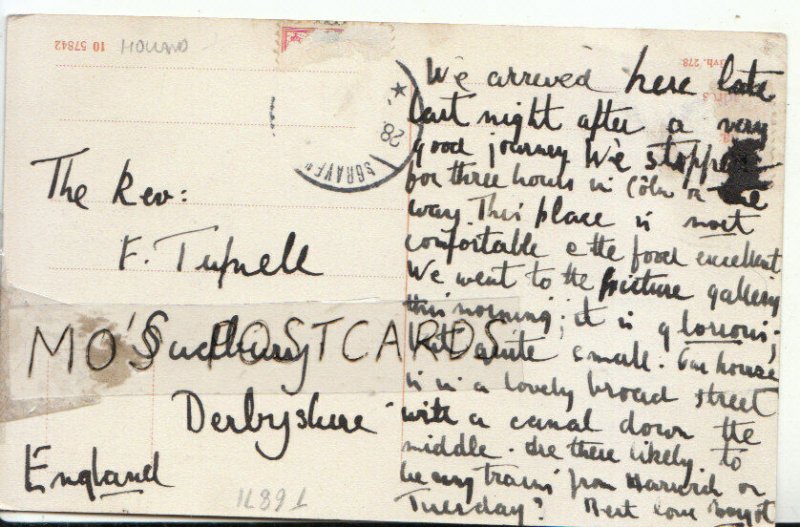 10 57842
HOLLAND
28
SGRAVEN
The Rev:
F. Tufnell
MO'S POSTCARDS
Sudbury
Derbyshire
England
We arrived here late
last night after a very
good journey We stopped
for three hours in Cöln on the
way. This place is most
comfortable & the food excellent
We went to the picture gallery
this morning; it is glorious;
but quite small. Our house
is in a lovely broad street
with a canal down the
middle. Are there likely to
be any trains from Harwich on
Tuesday? Best love